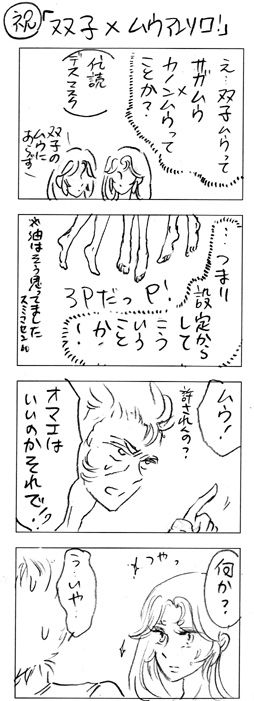 祝「双子×ムウアンソロ!」
え…双子ムウって
サガムウ
×
カノンムウって
ことか?
代読
デスマスク
双子の
ムウに
あらず
…つまり
設定から
して
こう
いう
こと
か!
3PだっP!
※油はそう思ってました
スミマセン
ムウ!
許されんの?
オマエは
いいのかそれで!?
何か?
つやっ
う…いや…